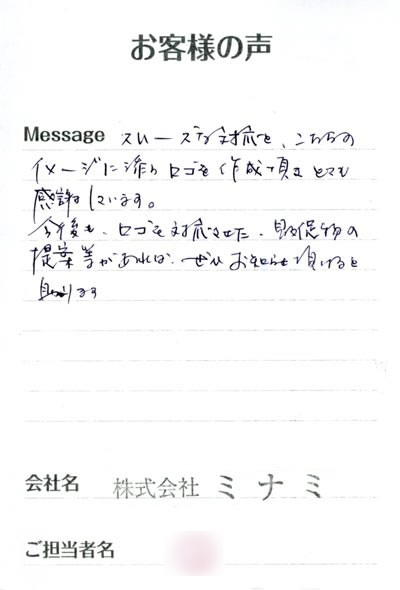 お客様の声
Message スムーズな対応で、こちらの
イメージに添うロゴを作成頂きとても
感謝しています。
今後も、ロゴを対応させた、販促物の
提案等があれば、ぜひお知らせ頂けると
助かります
会社名 株式会社 ミナミ
ご担当者名